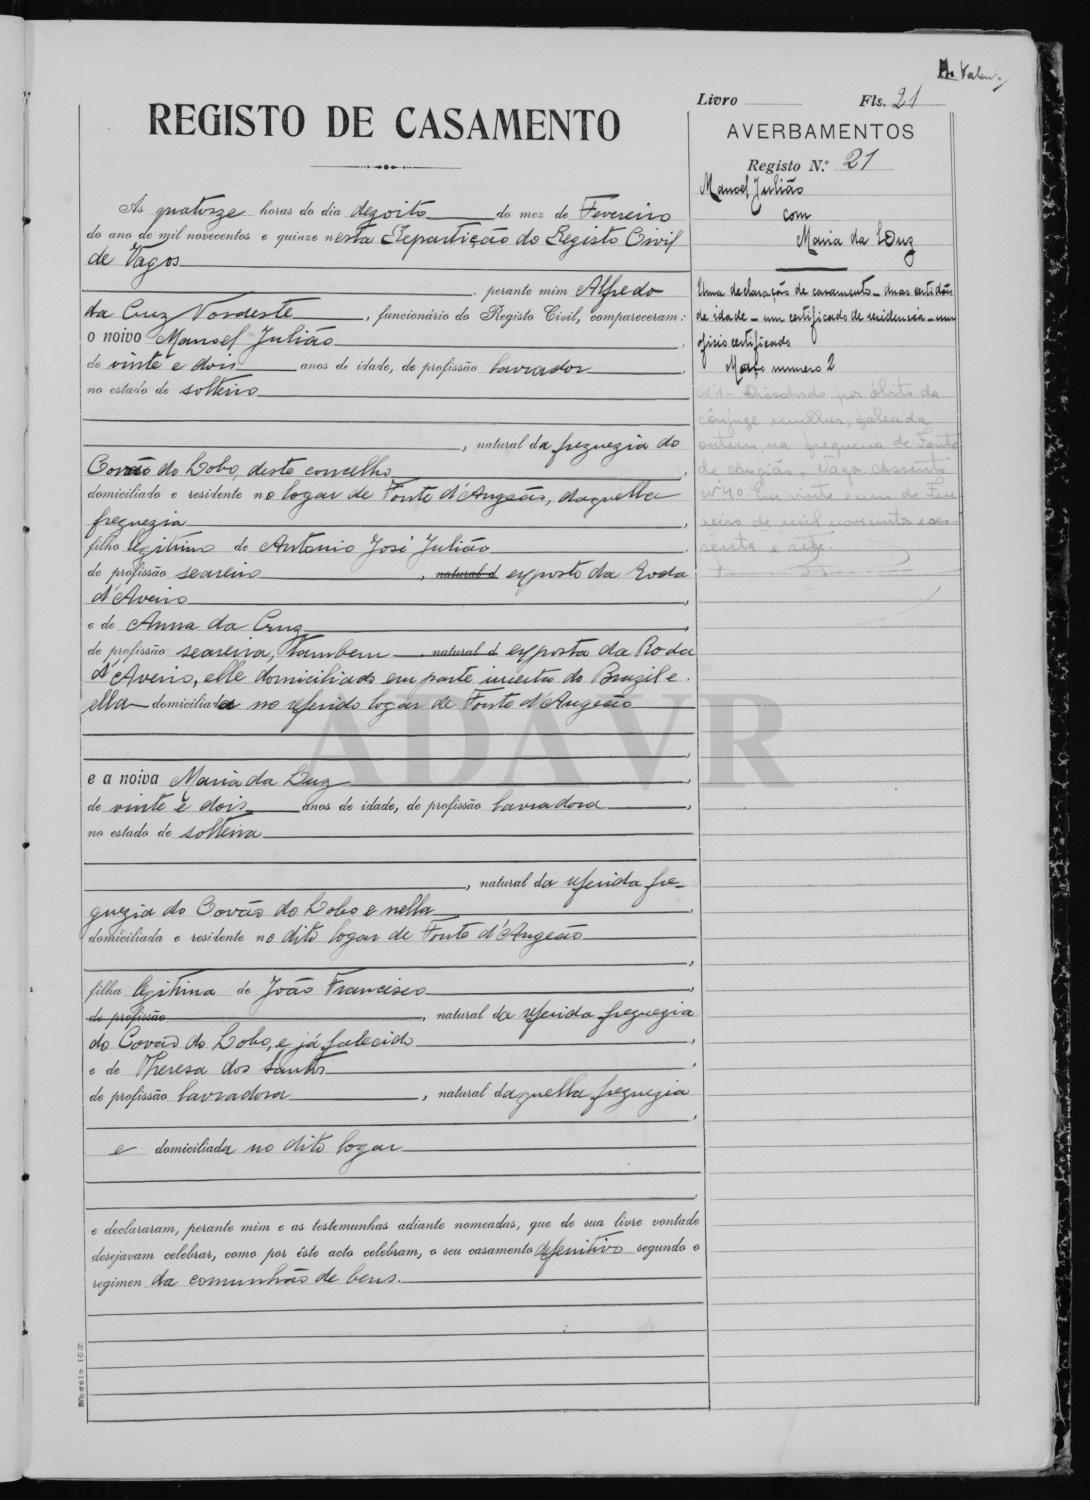 Livro Fls. 21
REGISTO DE CASAMENTO
AVERBAMENTOS
Registo N.º 21
Manoel Julião
com
Maria da Luz
Uma declaração de casamento - duas certidões
de idade - um certificado de residencia - um
oficio certificado
Março numero 2
Nº 1 - Dissolvido por óbito da
cônjuge mulher, falecida
ontem, na freguesia de Fonte
de Angião - Vagos. Assento
Nº 40. Em vinte e um de Feve
reiro de mil novecentos e ses-
senta e sete.
As quatorze horas do dia dezoito do mez de Fevereiro
do ano de mil novecentos e quinze nesta Repartição do Registo Civil
de Vagos
perante mim Alfredo
da Cruz Nordeste, funcionário do Registo Civil, compareceram:
o noivo Manoel Julião
de vinte e dois anos de idade, de profissão lavrador,
no estado de solteiro
, natural da freguezia do
Covão do Lobo, deste concelho,
domiciliado e residente no logar de Fonte d'Angeão, daquella
freguezia,
filho legitimo de Antonio José Julião
de profissão seareiro, natural d exposto da Roda
d'Aveiro,
e de Anna da Cruz,
de profissão seareira, tambem natural d exposta da Roda
d'Aveiro, elle domiciliado em parte incerta do Brazil e
ella domiciliada no referido logar de Fonte d'Angeão
e a noiva Maria da Luz,
de vinte e dois anos de idade, de profissão lavradora,
no estado de solteira
, natural da referida fre-
guezia do Covão do Lobo e nella,
domiciliada e residente no dito logar de Fonte d'Angeão
filha legitima de João Francisco,
de profissão, natural da referida freguezia
do Covão do Lobo, e já falecido,
e de Theresa dos Santos,
de profissão lavradora, natural daquella freguezia
e domiciliada no dito logar
e declararam, perante mim e as testemunhas adiante nomeadas, que de sua livre vontade
desejavam celebrar, como por êste acto celebram, o seu casamento definitivo segundo o
regimen da comunhão de bens.
Modelo 103
ADAVR